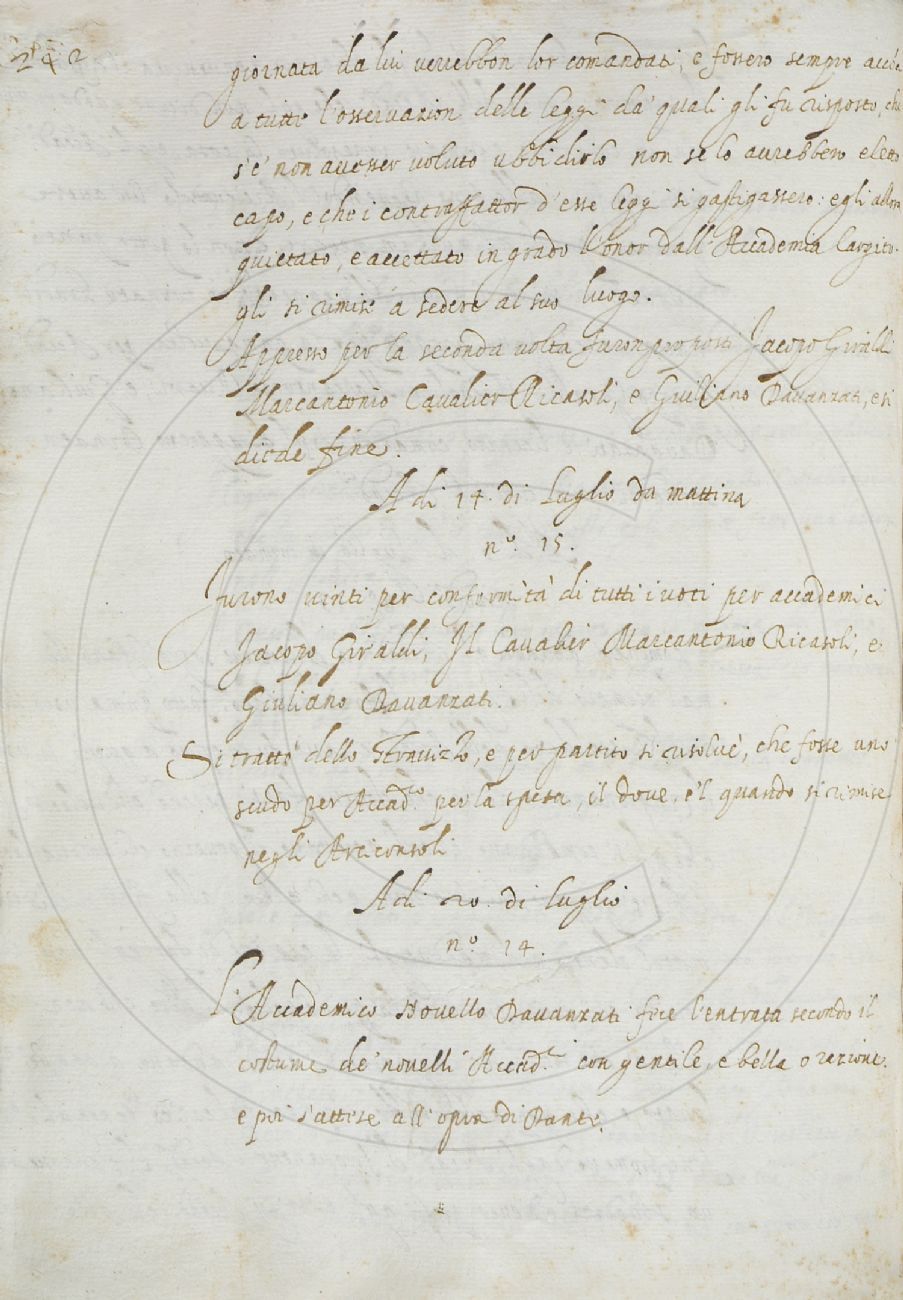 242
giornata da lui verrebbon lor comandati, e fossero sempre
a tutti l'osservazion delle leggi da' quali gli fu risposto, che
s'e' non avesser voluto ubbidirlo non se lo avrebbero eletto
capo, e che i contraffattor d'esse leggi si gastigassero: egli allora
quietato, e accettato in grado l'onor dall'Accademia largito-
gli si rimise a sedere al suo luogo.
Appresso per la seconda volta furon proposti Jacopo Giraldi
Marcantonio Cavalier Ricasoli, e Giuliano Davanzati, e si
diede fine.
Adi 14. di Luglio da mattina
n.º 15.
Furono vinti per conformità di tutti i voti per accademici
Jacopo Giraldi, Il Cavalier Marcantonio Ricasoli, e
Giuliano Davanzati.
Si trattò dello Stravizzo, e per partito si risolvè, che fosse uno
scudo per Accad.co per la spesa, il dove, e'l quando si rimise
negli Arciconsoli
Adi 20. di Luglio
n.º 14.
L'Accademico Novello Davanzati fece l'entrata secondo il
costume de' novelli Accad.ci con gentile, e bella orazione.
e poi s'attese all'opra di Dante.